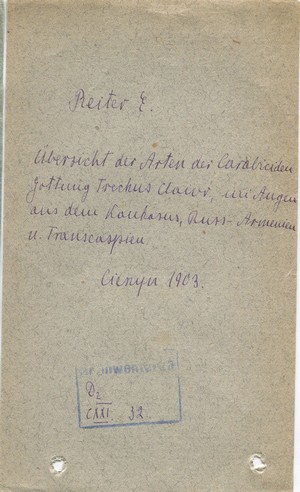 Reiter E.
Übersicht der Arten der Carabiciden
Gattung Trechus Clairv, mit Augen
aus dem Kaukasus, Russ-Armenien
u. Transcaspien.
1903.
D2
CXXI. 32.